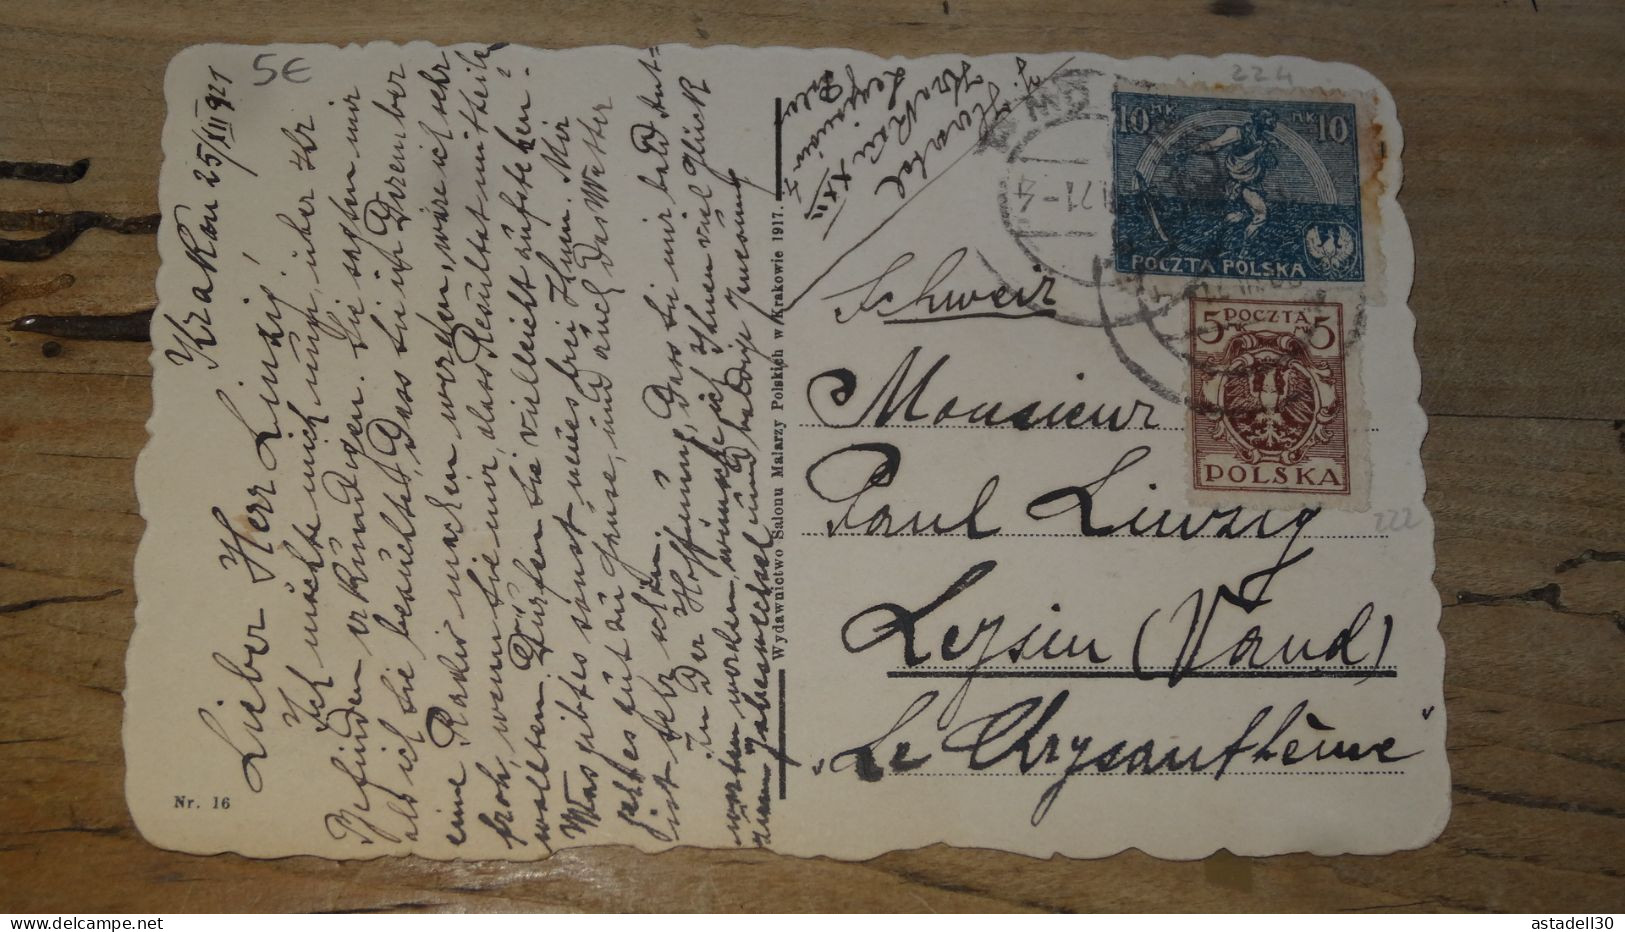 Krakau 25/XII 921
Lieber Herr Liwzig!
Ich möchte mich nun, über Ihr
Befinden erkundigen. Sie sagten mir
als ich Sie besuchte, dass Sie im Dezember
eine Radio machen werden, wäre ich sehr
froh, wenn Sie mir, das Resultat mitteilen
wollten. Dürfen Sie vielleicht aufstehen?
Was gibt es sonst neues bei Ihnen. Mir
geht es gut zu Hause, und auch das Wetter
ist sehr schön.
In der Hoffnung, dass Sie mir bald Ant-
worten werden, wünsche ich Ihnen viel Glück
zum Jahreswechsel und baldige Genesung
Nr. 16
Wydawnictwo Salonu Malarzy Polskich w Krakowie 1917.
Kraków XXII
5€
224
10 MK MK 10
POCZTA POLSKA
5 POCZTA 5
MK MK
POLSKA
222
Schweiz
Monsieur
Paul Liwzig
Leysin (Vaud)
„Le Chrysanthème"
astadell30